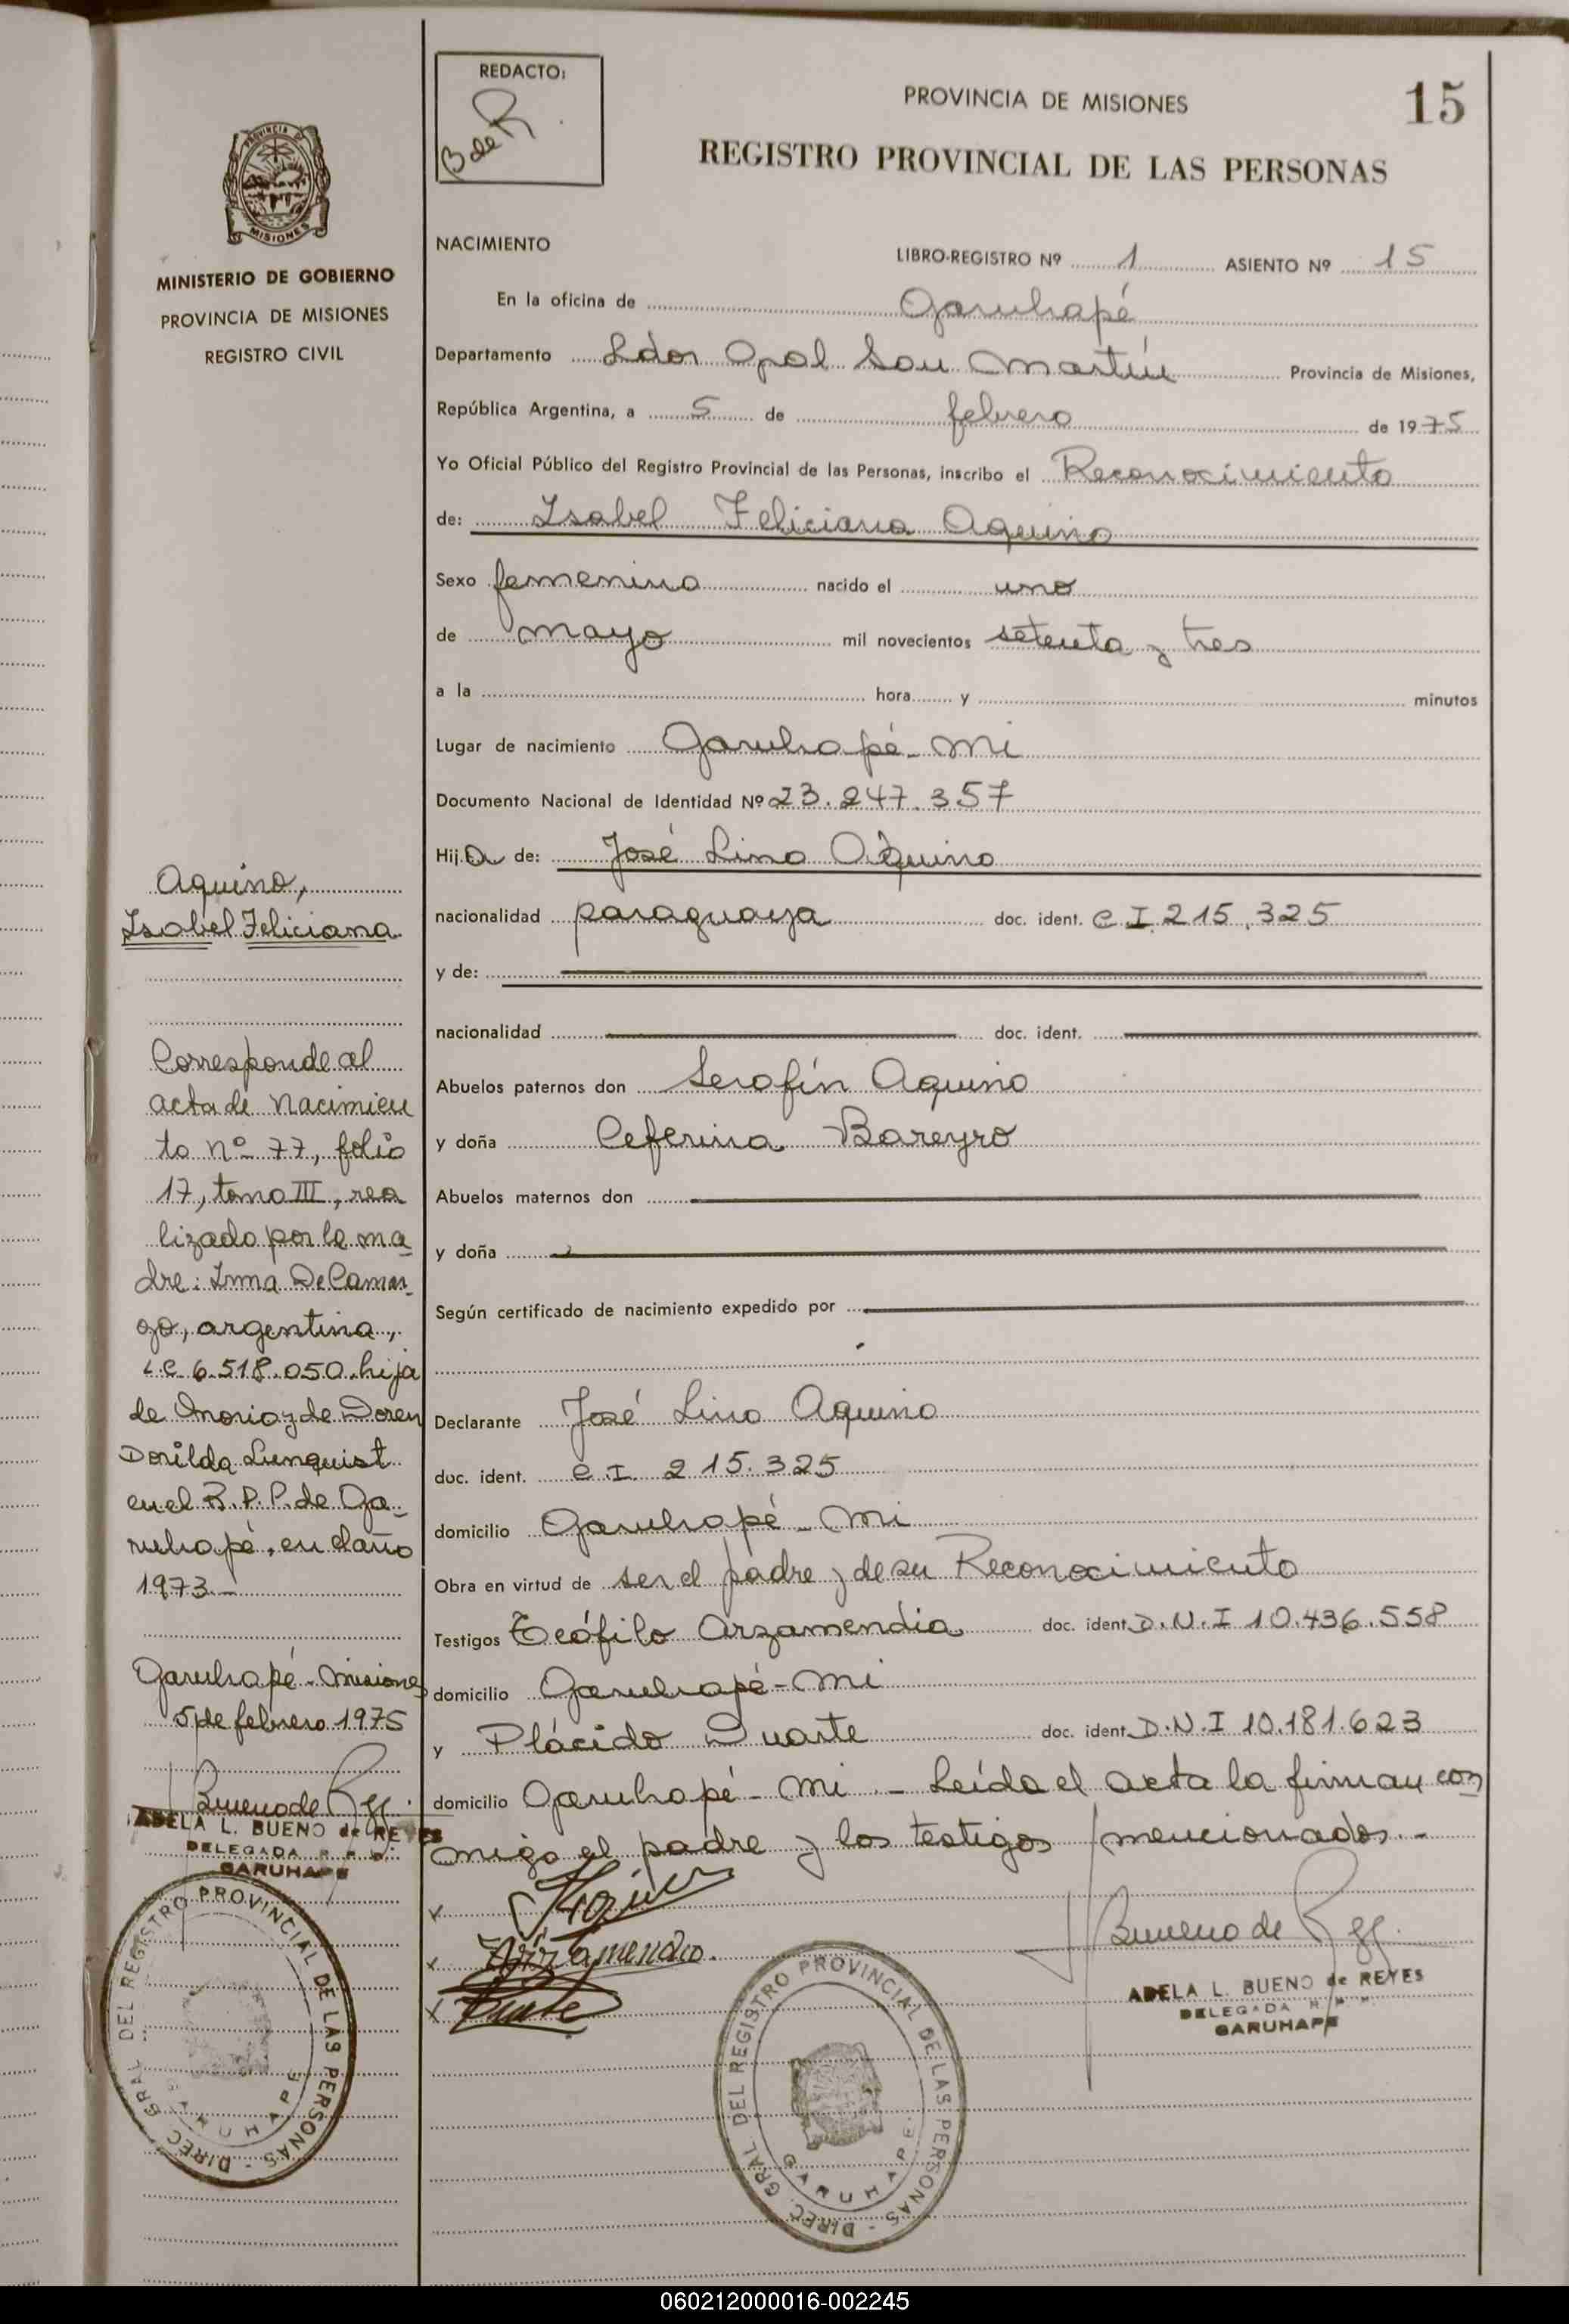 REDACTO:
B de R
PROVINCIA DE MISIONES
15
REGISTRO PROVINCIAL DE LAS PERSONAS
PROVINCIA DE
MISIONES
MINISTERIO DE GOBIERNO
PROVINCIA DE MISIONES
REGISTRO CIVIL
NACIMIENTO
LIBRO-REGISTRO Nº 1 ASIENTO Nº 15
En la oficina de Garuhapé
Departamento Ldor Gral San Martín Provincia de Misiones,
República Argentina, a 5 de febrero de 1975
Yo Oficial Público del Registro Provincial de las Personas, inscribo el Reconocimiento
de: Isabel Feliciana Aquino
Sexo femenino nacido el uno
de mayo mil novecientos setenta y tres
a la hora y minutos
Lugar de nacimiento Garuhapé - Mi
Documento Nacional de Identidad Nº 23.247.357
Hija de: José Lino Aquino
nacionalidad paraguaya doc. ident. C I 215.325
y de:
nacionalidad doc. ident.
Abuelos paternos don Serafín Aquino
y doña Ceferina Bareyro
Abuelos maternos don
y doña
Según certificado de nacimiento expedido por
Declarante José Lino Aquino
doc. ident. C.I. 215.325
domicilio Garuhapé - Mi
Obra en virtud de ser el padre y de su Reconocimiento
Testigos Teófilo Arzamendia doc. ident. D.N.I 10.436.558
domicilio Garuhapé - Mi
y Plácido Duarte doc. ident. D.N.I 10.181.623
domicilio Garuhapé - Mi - Leída el acta la firman con
migo el padre y los testigos mencionados.-
Aquino,
Isabel Feliciana
Corresponde al
acta de Nacimien
to nº 77, folio
17, tomo III, rea
lizado por la ma-
dre: Irma De Camar-
go, argentina,
L.C. 6.518.050. hija
de Mario y de Doren
Dorilda Lunquist
en el R.P.P. de Ga-
ruhapé, en el año
1973.-
Garuhapé - Misiones
5 de febrero 1975
Bueno de
ADELA L. BUENO de REYES
DELEGADA R. P. P.
GARUHAPE
DIREC. GRAL. DEL REGISTRO PROVINCIAL DE LAS PERSONAS -
GARUHAPE
x Aquino
x Arzamendia.
x Duarte
Bueno de
ADELA L. BUENO de REYES
DELEGADA
GARUHAPE
DIREC. GRAL. DEL REGISTRO PROVINCIAL DE LAS PERSONAS -
GARUHAPE
060212000016-002245